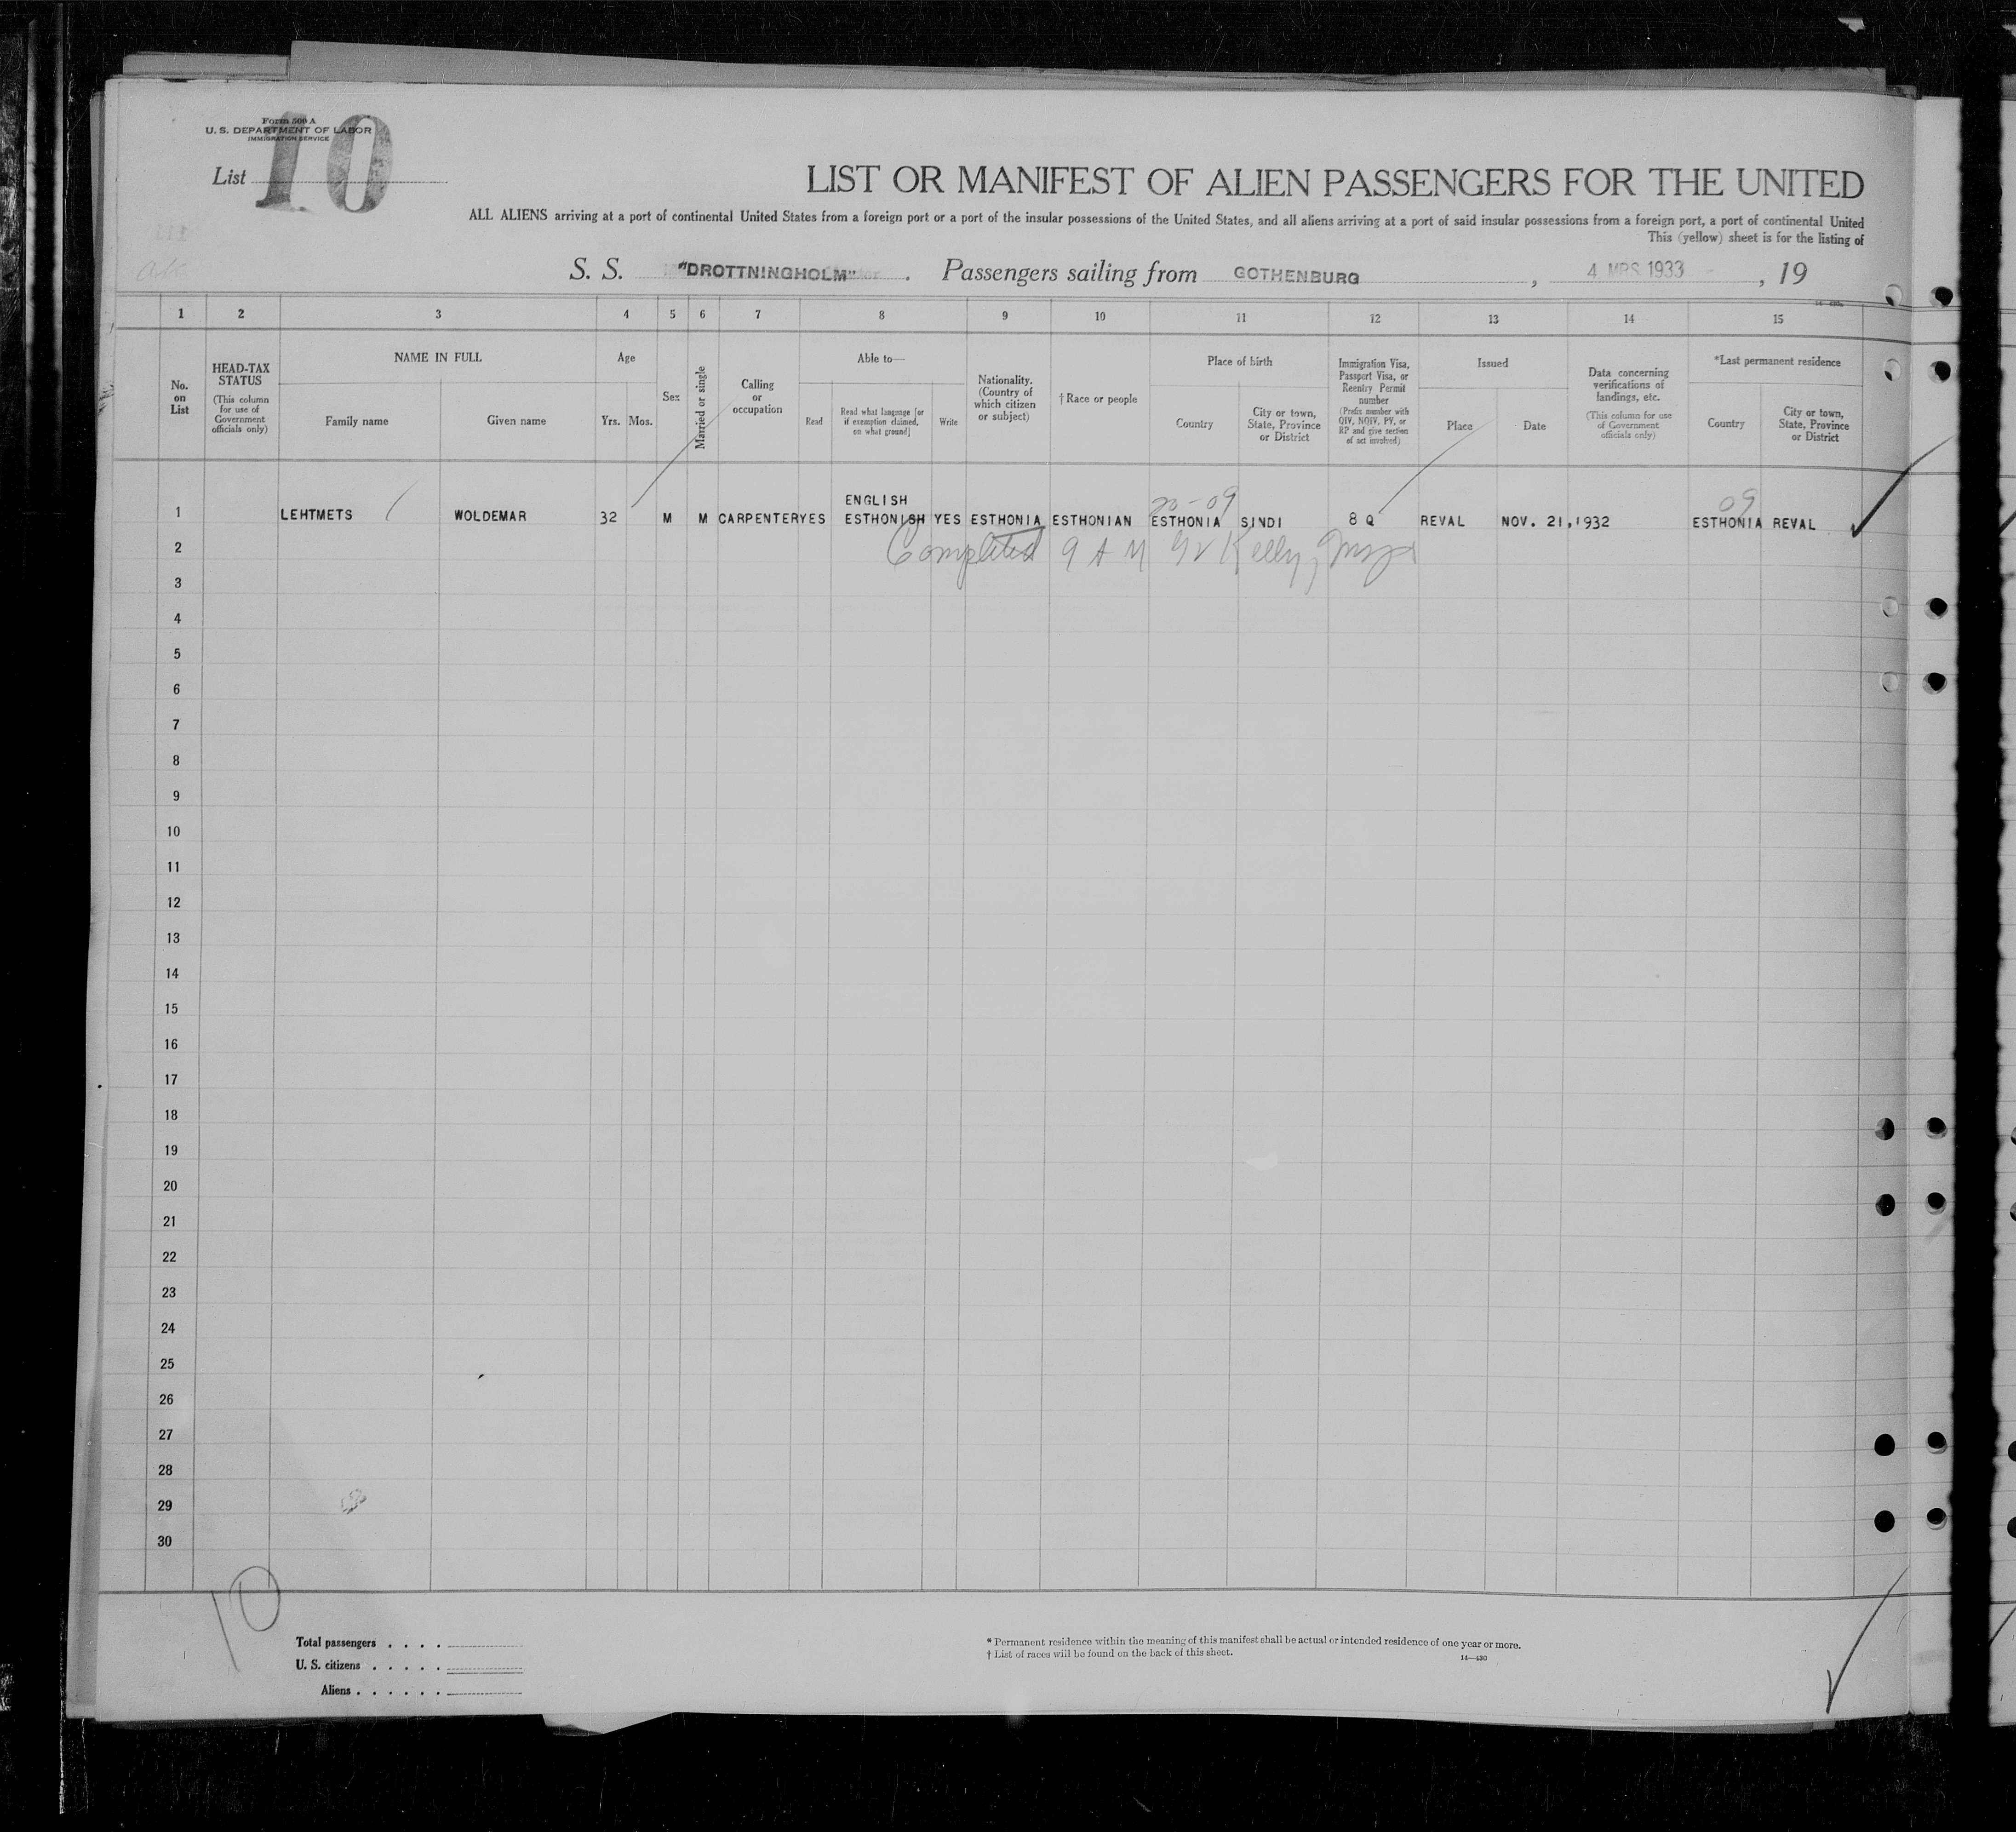 Form 500 A
U. S. DEPARTMENT OF LABOR
IMMIGRATION SERVICE
List 10
LIST OR MANIFEST OF ALIEN PASSENGERS FOR THE UNITED
ALL ALIENS arriving at a port of continental United States from a foreign port or a port of the insular possessions of the United States, and all aliens arriving at a port of said insular possessions from a foreign port, a port of continental United
This (yellow) sheet is for the listing of
S. S. "DROTTNINGHOLM" . Passengers sailing from GOTHENBURG , 4 MRS 1933 , 19
1 2 3 4 5 6 7 8 9 10 11 12 13 14 15
No. on List
HEAD-TAX STATUS (This column for use of Government officials only)
NAME IN FULL
Family name
Given name
Age
Yrs. Mos.
Sex
Married or single
Calling or occupation
Able to—
Read
Read what language [or if exemption claimed, on what ground]
Write
Nationality. (Country of which citizen or subject)
† Race or people
Place of birth
Country
City or town, State, Province or District
Immigration Visa, Passport Visa, or Reentry Permit number (Prefix number with QIV, NQIV, PV, or RP and give section of act involved)
Issued
Place
Date
Data concerning verifications of landings, etc. (This column for use of Government officials only)
*Last permanent residence
Country
City or town, State, Province or District
ENGLISH 20-09 09
1 LEHTMETS WOLDEMAR 32 M M CARPENTER YES ESTHONISH YES ESTHONIA ESTHONIAN ESTHONIA SINDI 8 Q REVAL NOV. 21,1932 ESTHONIA REVAL
Completed 9 A M Kelly,
2
3
4
5
6
7
8
9
10
11
12
13
14
15
16
17
18
19
20
21
22
23
24
25
26
27
28
29
30
10
Total passengers . . . .
U. S. citizens . . . . .
Aliens . . . . . .
* Permanent residence within the meaning of this manifest shall be actual or intended residence of one year or more.
† List of races will be found on the back of this sheet.
14—430